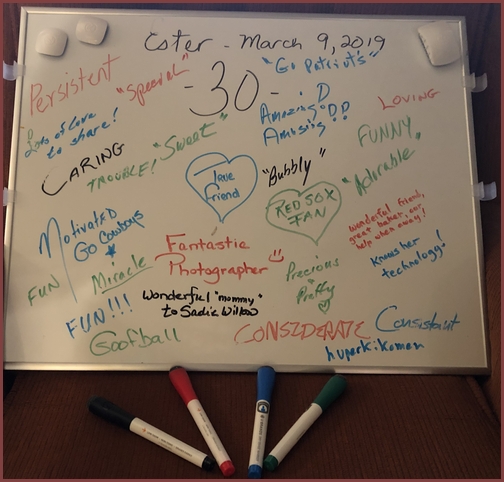 Ester - March 9, 2019
-30-
"Go Patriots"
Persistent
"Special"
Lots of love
to share!
Amazing
Amusing!
LOVING
FUNNY
CARING
TROUBLE!
"Sweet"
True
friend
"Bubbly"
"Adorable
RED SOX
FAN
Motivated
GO COWBOYS
wonderful friend,
great baker, our
help when away!
Knows her
technology!
Fantastic
Photographer
FUN
Miracle
Precious
Pretty
Wonderful "mommy"
to Sadie Willow
FUN!!!
Goofball
CONSIDERATE
Consistant